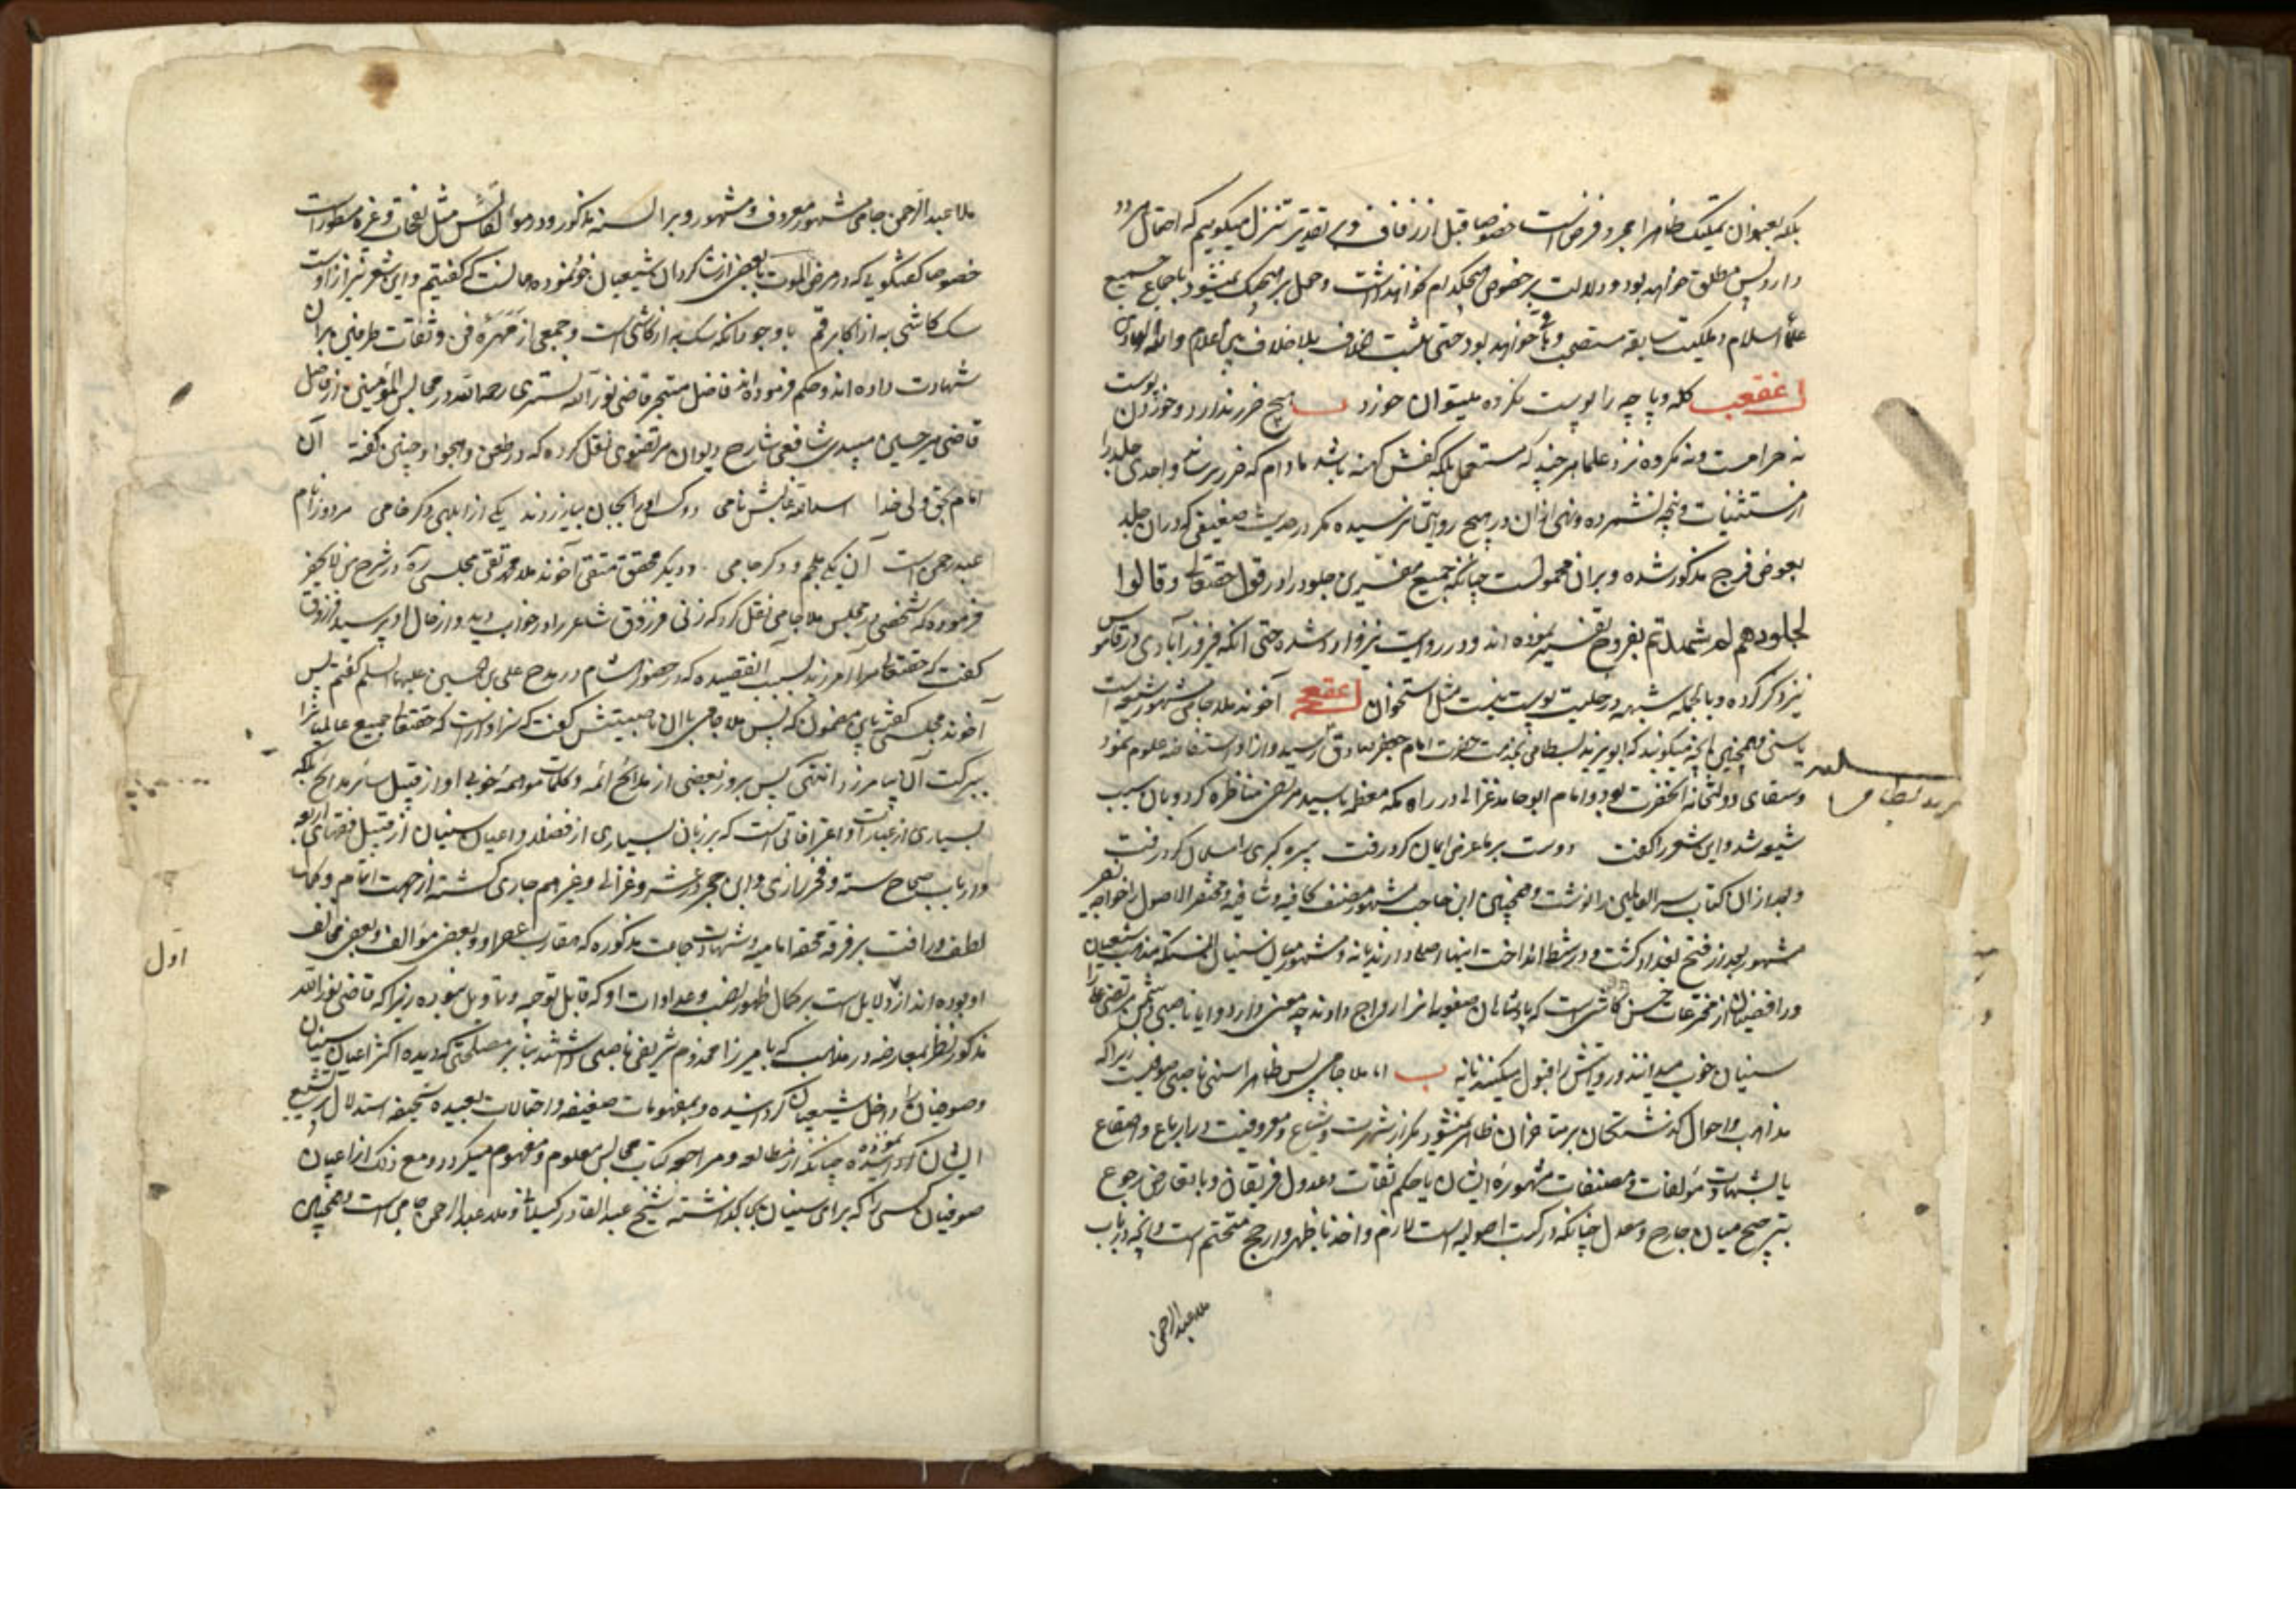 بلکه بعنوان تملیک ظاهرا مجرد فرض است خصوصا قبل از زفاف و بر تقدیر تنزل میگوییم که احتمال هر دو
دارد پس مطلق خواهد بود و دلالت بر خصوص هیچکدام نخواهد داشت و حمل بر هیچیک نمیشود باجماع جمیع
علماء اسلام و ملکیت سابقه مستصحب و باقی خواهد بود حتی یثبت الخلاف بلا خلاف بین اعلام والله الهادی
کله و پاچه را پوست نکرده میتوان خورد هیچ ضرر ندارد و خوردن پوست
نه حرامست و نه مکروه نزد علما هر چند که مستعمل بلکه کفش کهنه باشد مادام که ضرر نرساند و احدی جلد را
از مستثنیات ذبیحه نشمرده و نهی از آن در هیچ روایتی نرسیده مگر در حدیث ضعیفی که در آن جلد
بعوض فرج مذکور شده و بر آن محمولست چنانکه جمیع مفسرین جلود را در قول حقتعالی وقالوا
لجلودهم لم شهدتم بفروج تفسیر نموده اند و در روایت نیز وارد شده حتی آنکه فیروزآبادی در قاموس
نیز ذکر کرده و بالجمله شبهه در حلیت پوست نیست مثل استخوان آخوند ملا جامی مشهور شیعه است
یا سنی و همچنین آنچه میگویند که ابو یزید بسطامی بخدمت حضرت امام جعفر صادق رسید و از او استفاضه علوم نمود
و سقای دولتخانه آنحضرت بود و امام ابو حامد غزالی در راه مکه معظمه با سید مرتضی مناظره کرد و بآن سبب
شیعه شد و این شعر را گفت دوست بر ما عرض ایمان کرد و رفت پیره گبری را مسلمان کرد و رفت
و بعد از آن کتاب سر العالمین را نوشت و همچنین ابن حاجب مشهور مصنف کافیه و شافیه و مختصر الاصول را خواجه نصیر
مشهور بعد از فتح بغداد کشت و در شط انداخت اینها اصلی دارند یا نه و مشهور میان سنیان آنستکه مذهب شیعیان
و رافضیان از مخترعات حسن کاشی است که پادشاهان صفویه آنرا رواج دادند چه معنی دارد و آیا ناصبی و دشمن مرتضی علی را
سنیان خوب میدانند و روایتش را قبول میکنند یا نه اما ملا جامی پس ظاهرا سنی ناصبی صوفیست زیرا که
مذاهب و احوال گذشتگان بر متأخران ظاهر نمیشود مگر از شهرت و شیاع و معروفیت در ارباع و اصقاع
یا بشهادت مؤلفات و مصنفات مشهوره ایشان یا حکم ثقات و عدول فریقان و با تعارض رجوع
بترجیح میان جارح و معدل چنانکه در کتب اصولیه است لازم و اخذ باظهر و ارجح متحتم است و آنچه در باب
ملا عبد الرحمن
ملا عبد الرحمن جامی مشهور معروف و مشهور و بر السنه مذکور و در مؤلفاتش مثل نفحات و غیره مسطور است
خصوصا گفتگویی که در مرض الموت با بعضی از شاگردان شیعیان خود نموده همانست که گفتیم و این شعر نیز از اوست
سگ کاشی به از اکابر قم با وجود آنکه سگ به از کاشی است و جمعی از مهره فن و ثقات طرفین بر آن
شهادت داده اند و حکم فرموده اند فاضل متبحر قاضی نور الله تستری رحمه الله در مجالس المؤمنین از فاضل
قاضی میر حسین میبدی شافعی شارح دیوان مرتضوی نقل کرده که در طعن و هجو او چنین گفته آن
امام بحق ولی خدا اسد الله غالبش نامی دو کس او را بجان بیازردند یکی از ابلهی دگر خامی هر دو را نام
عبد رحمن است آن یکی ملجم و دگر جامی و دیگر محقق متقی آخوند ملا محمد تقی مجلسی ره در شرح من لا یحضر
فرموده که شخصی در مجلس ملا جامی نقل کرد که زنی فرزدق شاعر را در خواب دید و از حال او پرسید فرزدق
گفت که حقتعالی مرا آمرزید بسبب آن قصیده که در حضور هشام در مدح علی بن الحسین علیهما السلم گفتم پس
آخوند مجلسی گفته باین مضمون که پس ملا جامی با آن ناصبیتش گفت که سزاوار است که حقتعالی جمیع عالمیان را
ببرکت آن بیامرزد انتهی پس بروز بعضی از مدائح ائمه و کلمات موهمه خوبی او از قبیل سائر مدایح بلکه
بسیاری از عبارات و اعترافاتی است که بر زبان بسیاری از فضلا و اعیان سنیان از قبیل فقهای اربعه
و ارباب صحاح سته و فخر رازی و ابن حجر و غزالی و غیر هم جاری گشته از جهت اتمام و کمال
لطف و رافت بر فرقه محقه امامیه و شهادت جماعت مذکوره که مقارب عصر او و بعضی مؤالف و بعضی مخالف
او بوده اند از دلایل است بر کمال ظهور نصب و عداوت او که قابل توجیه و تاویل نبوده زیرا که قاضی نور الله
مذکور نظر بمعارضه در مذاهب که با میرزا مخدوم شریفی ناصبی داشته بنابر مصلحتی که دیده اکثر اعیان سنیان
و صوفیان را داخل شیعیان گردانیده و بمفهومات ضعیفه و احتمالات بعیده سخیفه استدلال بر تشیع
ایشان نموده چنانکه از مطالعه و مراجعه کتاب مجالس معلوم و مفهوم میگردد و مع ذلک از اعیان
صوفیان کسی را که برای سنیان بجا گذاشته شیخ عبد القادر گیلانی و ملا عبد الرحمن جامی است و همچنین
اول